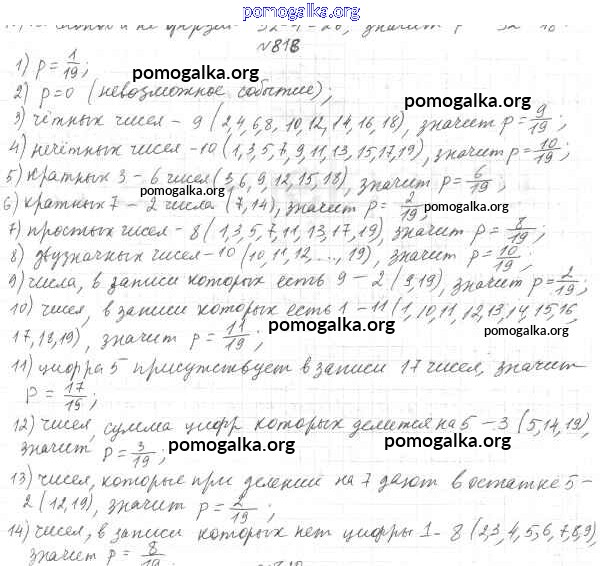 pomogalka.org
№818
1) p = 1/19;
pomogalka.org
2) p=0 (невозможное событие);
pomogalka.org
3) чётных чисел - 9 (2,4,6,8, 10,12,14,16,18), значит p = 9/19;
4) нечётных чисел -10 (1,3,5,7,9,11,13,15,17,19), значит p = 10/19;
5) кратных 3 - 6 чисел (3,6,9,12,15,18), значит p = 6/19;
pomogalka.org
6) кратных 7 - 2 числа (7,14), значит p = 2/19;
pomogalka.org
7) простых чисел - 8 (1,3,5,7,11,13,17,19), значит p = 8/19;
8) двузначных чисел -10 (10,11,12,..., 19), значит p = 10/19;
9) числа, в записи которых есть 9 - 2 (9,19), значит p = 2/19;
10) чисел, в записи которых есть 1 - 11 (1,10,11,12,13,14,15,16,
17,18,19), значит p = 11/19;
pomogalka.org
pomogalka.org
11) цифра 5 присутствует в записи 17 чисел, значит
p = 17/19;
12) чисел, сумма цифр которых делится на 5 - 3 (5,14,19),
значит p = 3/19;
pomogalka.org
pomogalka.org
13) чисел, которые при делении на 7 дают в остатке 5 -
2 (12,19), значит p = 2/19;
14) чисел, в записи которых нет цифры 1 - 8 (2,3,4,5,6,7,8,9),
значит p = 8/19
pomogalka.org